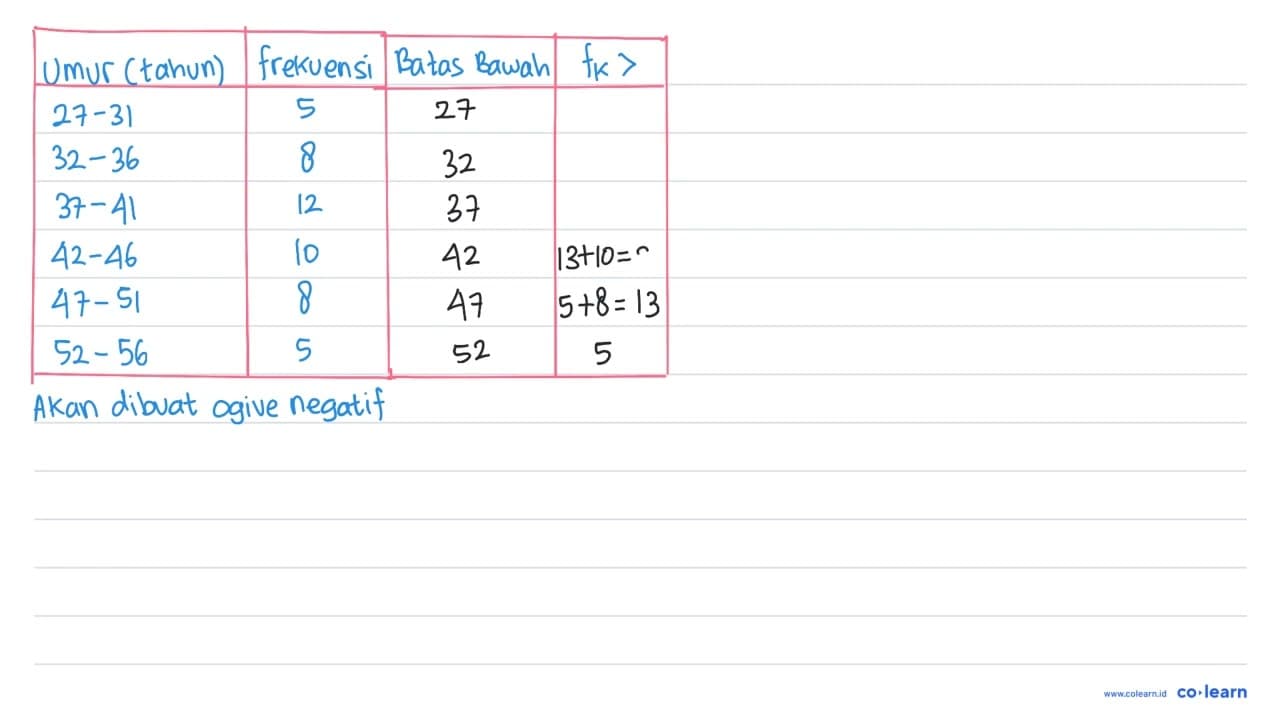 Umur (tahun) frekuensi Batas Bawah fk >
27-31 5 27
32-36 8 32
37-41 12 37
42-46 10 42 13+10=
47-51 8 47 5+8=13
52-56 5 52 5
Akan dibuat ogive negatif
www.colearn.id co·learn